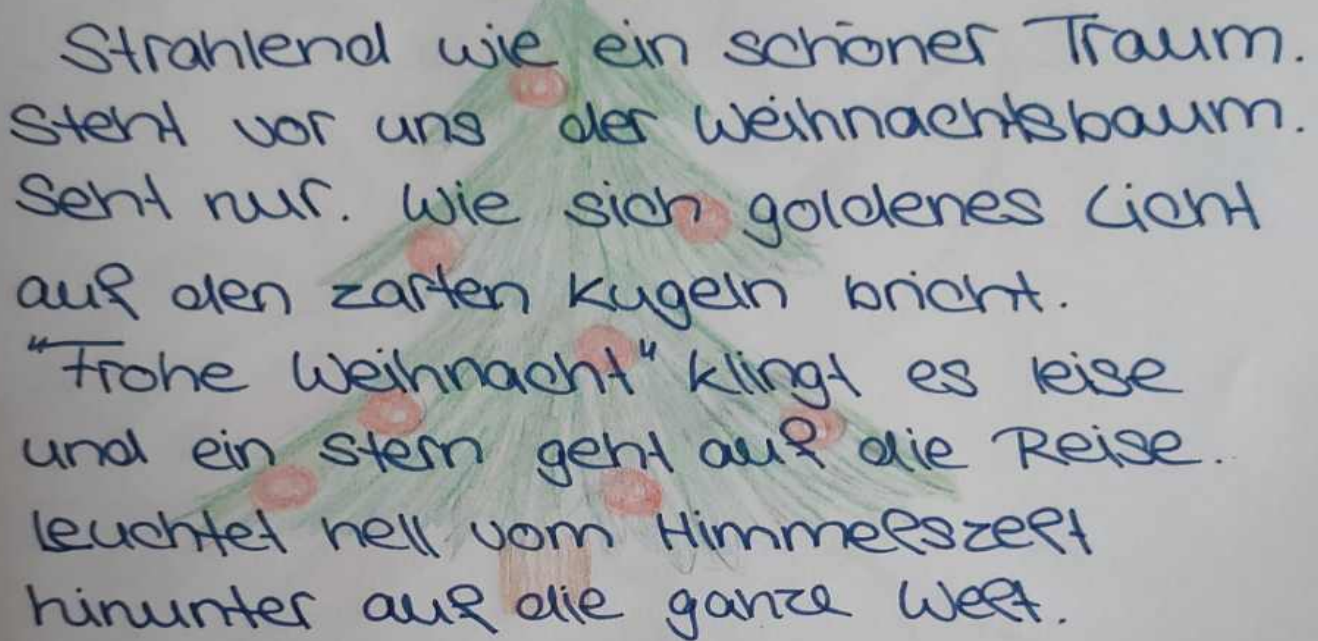 Strahlend wie ein schöner Traum.
steht vor uns der Weihnachtsbaum.
Seht nur. Wie sich goldenes Licht
auf den zarten Kugeln bricht.
"Frohe Weihnacht" klingt es leise
und ein Stern geht auf die Reise.
Leuchtet hell vom Himmelszelt
hinunter auf die ganze Welt.